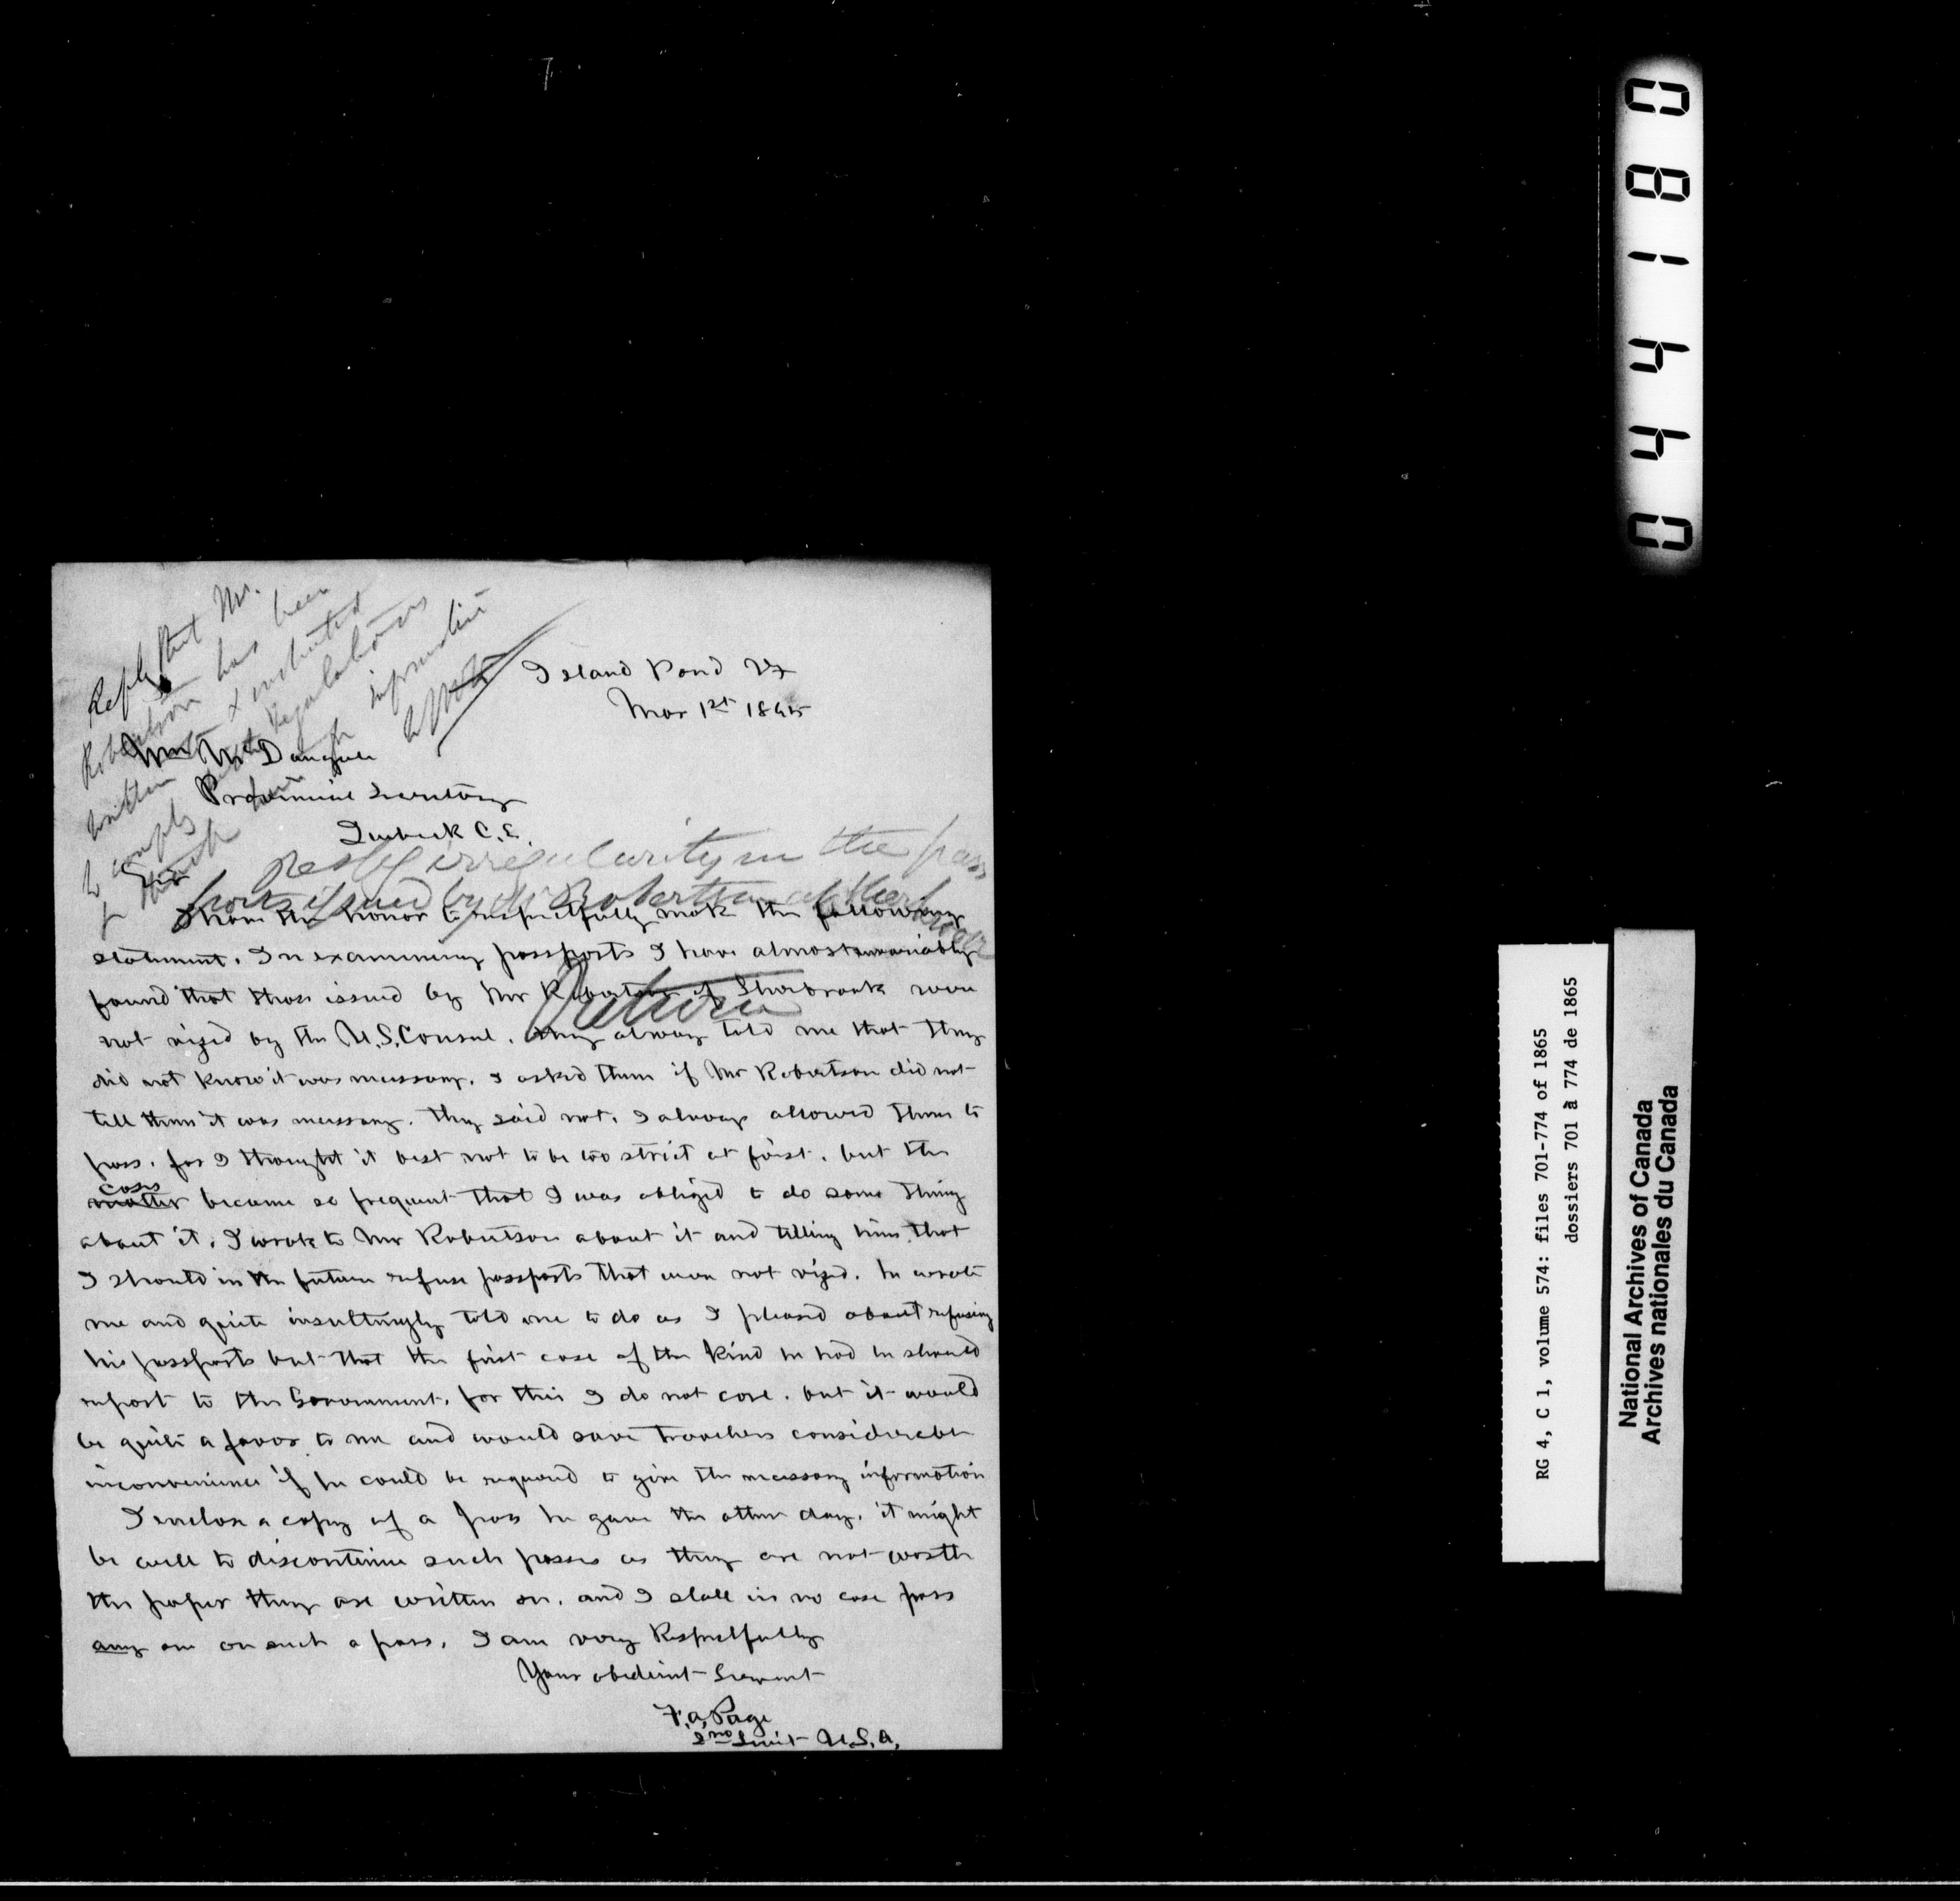 Reply that Mr.
Robertson has been
written to & instructed
to comply with Regulations
& thank for information
Island Pond Vt
Mar 1st 1865
Wm McDougall
Provincial Secretary
Quebeck C.E.
Sir
Resp'g irregularity in the pass
ports issued by Mr Robertson of Sherbrooke
I have the honor to respectfully make the following
statement. In examining passports I have almost invariably
found that those issued by Mr Robertson of Sherbrook were
Return
not vised by the U.S. Consul. they always told me that they
did not know it was necessary. I asked them if Mr Robertson did not
tell them it was necessary. they said not. I always allowed them to
pass. for I thought it best not to be too strict at first. but the
cases
matter became so frequent that I was obliged to do some thing
about it. I wrote to Mr Robertson about it and telling him that
I should in the future refuse passports that were not vised. he wrote
me and quite insultingly told me to do as I pleased about refusing
his passports but that the first case of the kind he had he should
report to the Government. for this I do not care. but it would
be quite a favor to me and would save travelers considerable
inconvenience if he could be required to give the necessary information
I enclose a copy of a pass he gave the other day. it might
be well to discontinue such passes as they are not worth
the paper they are written on. and I shall in no case pass
any one on such a pass. I am very Respectfully
Your obedient Servant
F. A. Page
2nd Lieut U.S.A.
081440
RG 4, C 1, volume 574: files 701-774 of 1865
dossiers 701 à 774 de 1865
National Archives of Canada
Archives nationales du Canada